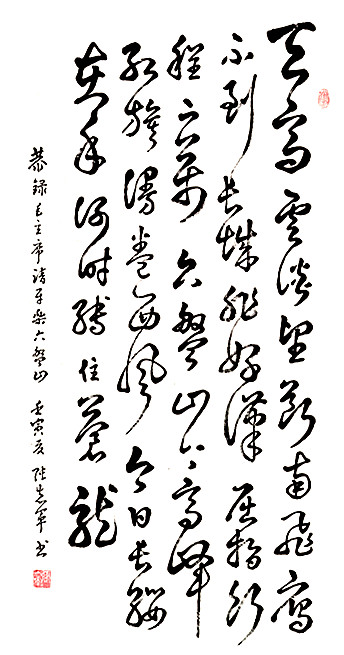 天高雲淡望斷南飛雁
不到長城非好漢屈指行
程二萬六盤山上高峰
紅旗漫卷西風今日長纓
在手何時縛住蒼龍
恭録毛主席清平樂六盤山 壬寅夏 書